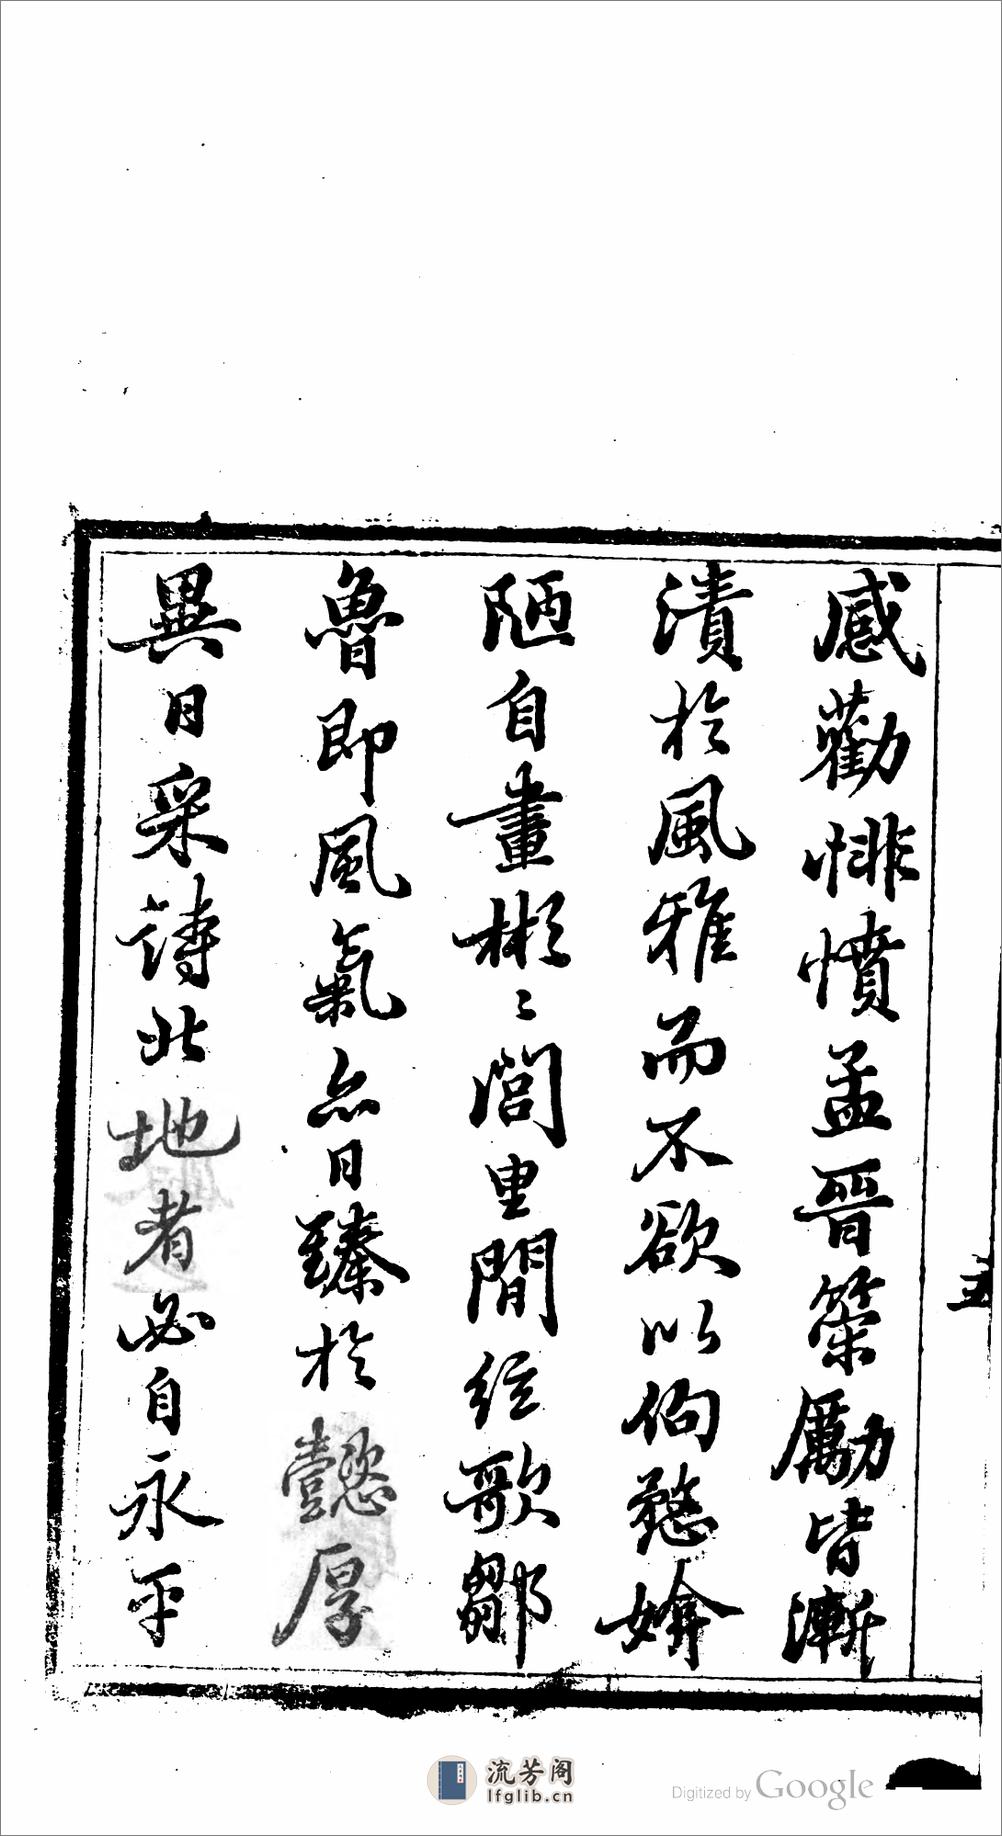 感勸悱憤孟晉策勵皆漸
漬於風雅而不欲以佝愗媕
陋自畫彬〻閭里間絃歌鄒
魯即風氣亦日臻於懿厚
異日采詩此地者必自永平
五
流芳阁
lfglib.cn
Digitized by Google